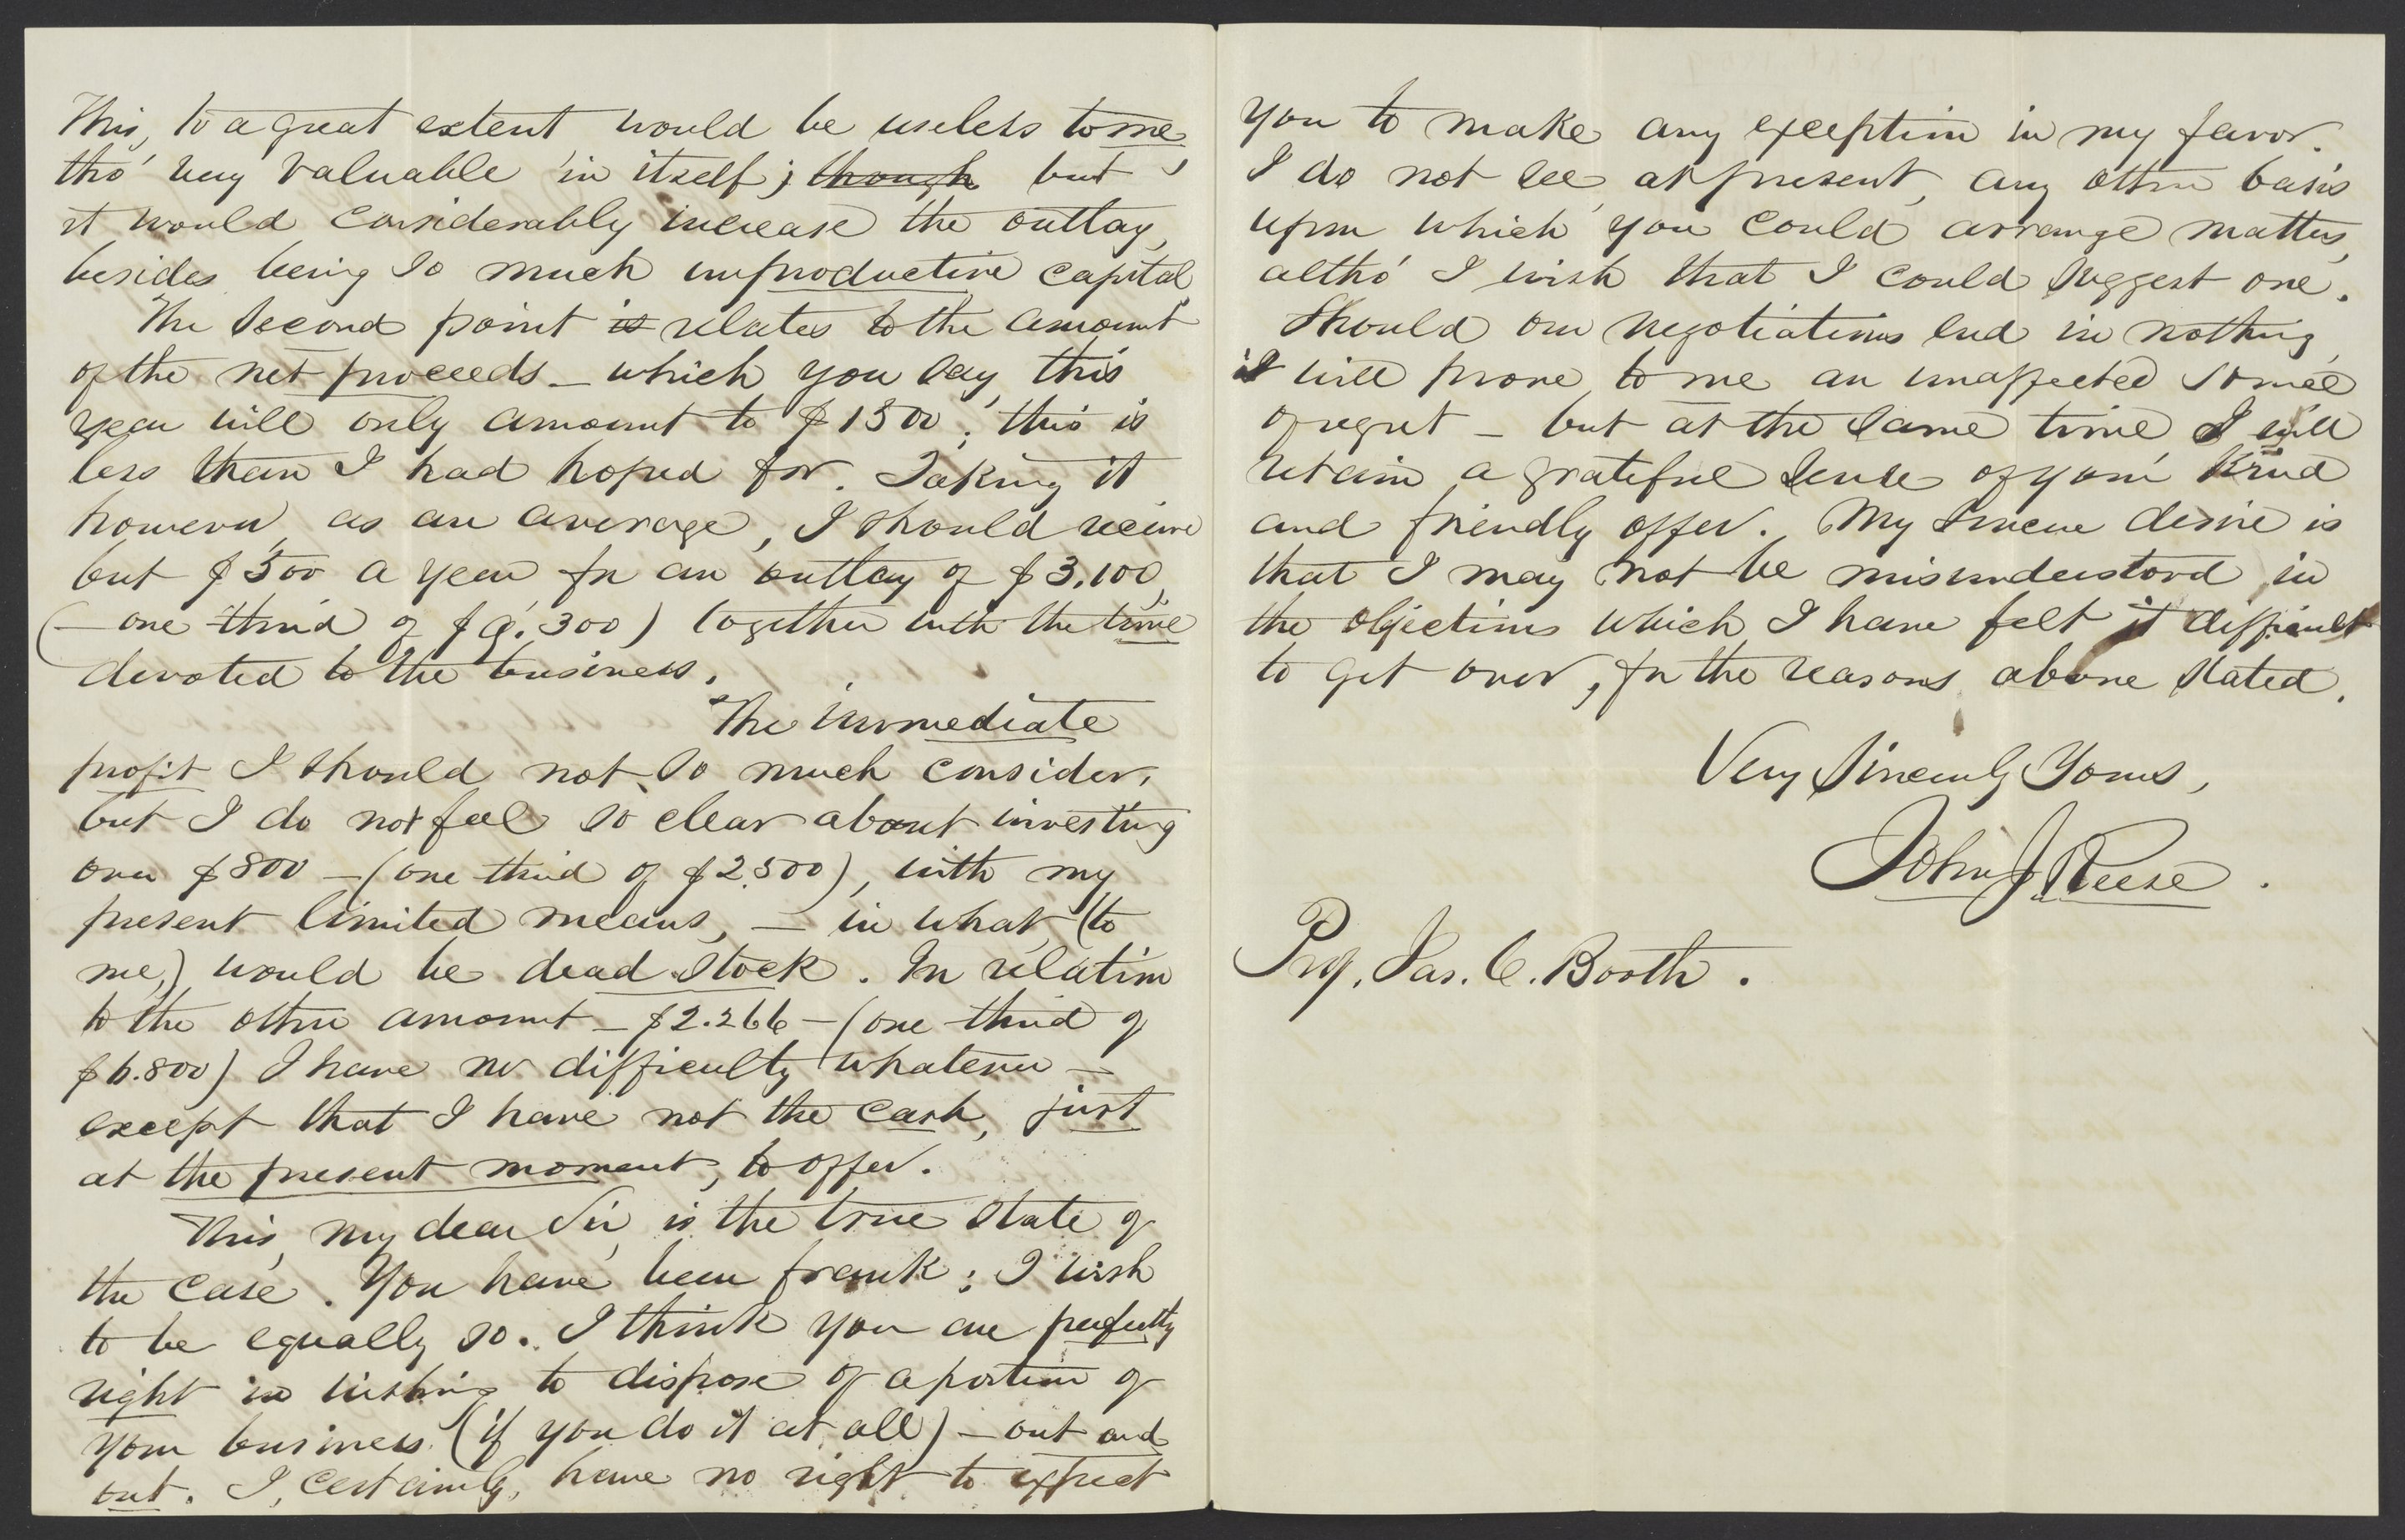 This, to a great extent would be useless to me,
tho' very valuable in itself; though but
it would considerably increase the outlay,
besides being so much unproductive capital.
The second point is relates to the amount
of the net proceeds – which you say, this
year will only amount to $1500; this is
less than I had hoped for. Taking it
however, as an average, I should receive
but $500 a year for an outlay of $3.100,
(– one third of $9.300) together with the time
devoted to the business.
The immediate
profit I should not so much consider,
but I do not feel so clear about investing
over $800 – (one third of $2.500), with my
present limited means, – in what (to
me,) would be dead stock. In relation
to the other amount – $2.266 – (one third of
$6.800) I have no difficulty whatever –
except that I have not the cash, just
at the present moment, to offer.
This, my dear Sir, is the true state of
the case. You have been frank; I wish
to be equally so. I think you are perfectly
right in wishing to dispose of a portion of
your business (if you do it at all) – out and
out. I, certainly, have no right to expect
you to make any exception in my favor.
I do not see, at present, any other basis
upon which you could arrange matters,
altho' I wish that I could suggest one.
Should our negotiations end in nothing,
it will prove to me an unaffected source
of regret – but at the same time I will
retain a grateful sense of your kind
and friendly offer. My sincere desire is
that I may not be misunderstood in
the objections which I have felt it difficult
to get over, for the reasons above stated.
Very Sincerely Yours,
John J. Reese.
Prof. Jas. C. Booth.